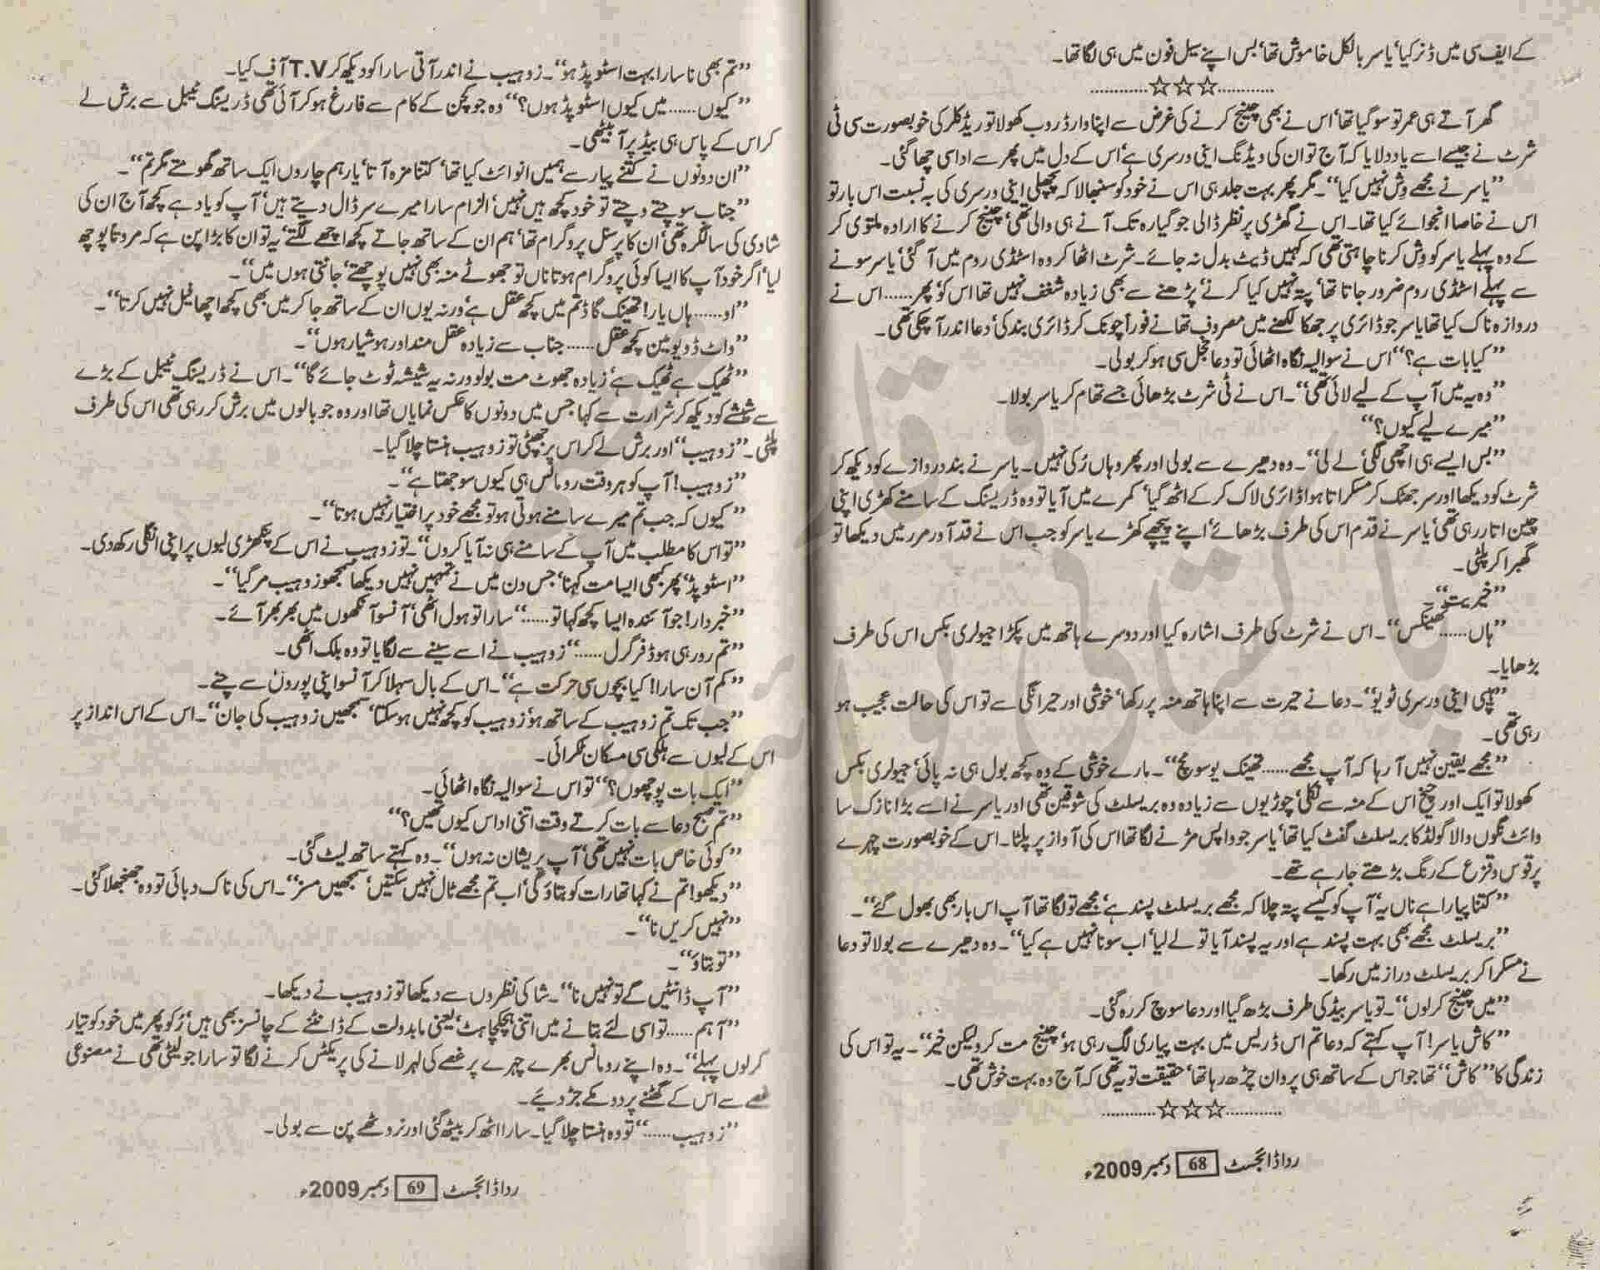 کے ایف سی میں ڈنر کیا‘ یاسر بالکل خاموش تھا‘ بس اپنے سیل فون میں ہی لگا تھا۔
............☆☆☆............
گھر آتے ہی عمر تو سو گیا تھا‘ اس نے بھی چینج کرنے کی غرض سے اپنا وارڈروب کھولا تو ریڈ کلر کی خوبصورت سی ٹی
شرٹ نے جیسے اسے یاد دلایا کہ آج تو ان کی ویڈنگ اینی ورسری ہے‘ اس کے دل میں پھر سے اداسی چھا گئی۔
’’یاسر نے مجھے وش نہیں کیا‘‘۔ مگر پھر بہت جلد ہی اس نے خود کو سنبھالا کہ پچھلی اینی ورسری کی بہ نسبت اس بار تو
اس نے خاصا انجوائے کیا تھا۔ اس نے گھڑی پر نظر ڈالی جو گیارہ تک آنے ہی والی تھی‘ چینج کرنے کا ارادہ ملتوی کر
کے وہ پہلے یاسر کو وش کرنا چاہتی تھی کہ کہیں ڈیٹ بدل نہ جائے۔ شرٹ اٹھا کر وہ اسٹڈی روم میں آ گئی‘ یاسر سونے
سے پہلے اسٹڈی روم ضرور جاتا تھا‘ پتہ نہیں کیا کرنے‘ پڑھنے سے بھی زیادہ شغف نہیں تھا اس کو‘ پھر...... اس نے
دروازہ ناک کیا تھا یاسر جو ڈائری پر جھکا لکھنے میں مصروف تھا نے فوراً چونک کر ڈائری بند کی‘ دعا اندر آ چکی تھی۔
’’کیا بات ہے؟‘‘ اس نے سوالیہ نگاہ اٹھائی تو دعا خجل سی ہو کر بولی۔
’’وہ یہ میں آپ کے لیے لائی تھی‘‘۔ اس نے ٹی شرٹ بڑھائی جسے تھام کر یاسر بولا۔
’’میرے لیے کیوں؟‘‘
’’بس ایسے ہی اچھی لگی‘ لے لی‘‘۔ وہ دھیرے سے بولی اور پھر وہاں رُکی نہیں۔ یاسر نے بند دروازے کو دیکھ کر
شرٹ کو دیکھا اور سر جھٹک کر مسکراتا ہوا ڈائری لاک کر کے اٹھ گیا‘ کمرے میں آیا تو وہ ڈریسنگ کے سامنے کھڑی اپنی
چین اتار رہی تھی‘ یاسر نے قدم اس کی طرف بڑھائے‘ اپنے پیچھے کھڑے یاسر کو جب اس نے قد آور مرر میں دیکھا تو
گھبرا کر پلٹی۔
’’خیریت‘‘۔
’’ہاں...... تھینکس‘‘۔ اس نے شرٹ کی طرف اشارہ کیا اور دوسرے ہاتھ میں پکڑا جیولری بکس اس کی طرف
بڑھایا۔
’’ہیپی اینی ورسری ٹو یو‘‘۔ دعا نے حیرت سے اپنا ہاتھ منہ پر رکھا‘ خوشی اور حیرانگی سے تو اس کی حالت عجیب ہو
رہی تھی۔
’’مجھے یقین نہیں آ رہا کہ آپ مجھے...... تھینک یو سو مچ‘‘۔ مارے خوشی کے وہ کچھ بول ہی نہ پائی‘ جیولری بکس
کھولا تو ایک اور چیخ اس کے منہ سے نکلی‘ چوڑیوں سے زیادہ وہ بریسلٹ کی شوقین تھی اور یاسر نے اسے بڑا نازک سا
وائٹ نگوں والا گولڈ کا بریسلٹ گفٹ کیا تھا‘ یاسر جو واپس مڑنے لگا تھا اس کی آواز پر پلٹا۔ اس کے خوبصورت چہرے
پر قوس و قزع کے رنگ بڑھتے جا رہے تھے۔
’’کتنا پیارا ہے ناں یہ‘ آپ کو کیسے پتہ چلا کہ مجھے بریسلٹ پسند ہے‘ مجھے تو لگا تھا آپ اس بار بھی بھول گئے‘‘۔
’’بریسلٹ مجھے بھی بہت پسند ہے اور یہ پسند آیا تو لے لیا‘ اب سونا نہیں ہے کیا‘‘۔ وہ دھیرے سے بولا تو دعا
نے مسکرا کر بریسلٹ دراز میں رکھا۔
’’میں چینج کر لوں‘‘۔ تو یاسر بیڈ کی طرف بڑھ گیا اور دعا سوچ کر رہ گئی۔
’’کاش یاسر! آپ کہتے کہ دعا تم اس ڈریس میں بہت پیاری لگ رہی ہو‘ چینج مت کرو لیکن خیر‘‘۔ یہ تو اس کی
زندگی کا ’’کاش‘‘ تھا جو اس کے ساتھ ہی پروان چڑھ رہا تھا‘ حقیقت تو یہ تھی کہ آج وہ بہت خوش تھی۔
............☆☆☆............
ردا ڈائجسٹ 68 دسمبر 2009ء
’’تم بھی نا سارا بہت اسٹوپڈ ہو‘‘۔ زوہیب نے اندر آتی سارا کو دیکھ کر T.V آف کیا۔
’’کیوں...... میں کیوں اسٹوپڈ ہوں؟‘‘ وہ جو کچن کے کام سے فارغ ہو کر آئی تھی ڈریسنگ ٹیبل سے برش لے
کر اس کے پاس ہی بیڈ پر آ بیٹھی۔
’’ان دونوں نے کتنے پیار سے ہمیں انوائٹ کیا تھا‘ کتنا مزہ آتا‘ یار ہم چاروں ایک ساتھ گھومتے مگر تم‘‘۔
’’جناب سوچتے وچتے تو خود کچھ ہیں نہیں‘ الزام سارا میرے سر ڈال دیتے ہیں‘ آپ کو یاد ہے کچھ آج ان کی
شادی کی سالگرہ تھی‘ ان کا پرسنل پروگرام تھا‘ ہم ان کے ساتھ جاتے کچھ اچھے لگتے‘ یہ تو ان کا بڑا پن ہے کہ مروتاً پوچھ
لیا‘ اگر خود آپ کا ایسا کوئی پروگرام ہوتا ناں تو جھوٹے منہ بھی نہیں پوچھتے‘ جانتی ہوں میں‘‘۔
’’او...... ہاں یار! تھینک گاڈ تم میں کچھ عقل ہے‘ ورنہ یوں ان کے ساتھ جا کر میں بھی کچھ اچھا فیل نہیں کرتا‘‘۔
’’واٹ ڈو یو مین کچھ عقل...... جناب سے زیادہ عقل مند اور ہوشیار ہوں‘‘۔
’’ٹھیک ہے ٹھیک ہے‘ زیادہ جھوٹ مت بولو ورنہ یہ شیشہ ٹوٹ جائے گا‘‘۔ اس نے ڈریسنگ ٹیبل کے بڑے
سے شیشے کو دیکھ کر شرارت سے کہا جس میں دونوں کا عکس نمایاں تھا اور وہ جو بالوں میں برش کر رہی تھی اس کی طرف
پلٹی۔ ’’زوہیب‘‘ اور برش لے کر اس پر جھپٹی تو زوہیب ہنستا چلا گیا۔
’’زوہیب! آپ کو ہر وقت رومانس ہی کیوں سوجھتا ہے‘‘۔
’’کیوں کہ جب تم میرے سامنے ہوتی ہو تو مجھے خود پر اختیار نہیں ہوتا‘‘۔
’’تو اس کا مطلب میں آپ کے سامنے ہی نہ آیا کروں‘‘۔ تو زوہیب نے اس کے پنکھڑی لبوں پر اپنی انگلی رکھ دی۔
’’اسٹوپڈ‘ پھر کبھی ایسا مت کہنا‘ جس دن میں نے تمہیں نہیں دیکھا سمجھو زوہیب مر گیا‘‘۔
’’خبردار! جو آئندہ ایسا کچھ کہا تو......‘‘ سارا تو ہول اٹھی‘ آنسو آنکھوں میں بھر بھر آئے۔
’’تم رو رہی ہو ڈفر گرل......‘‘ زوہیب نے اسے سینے سے لگایا تو وہ بلک اٹھی۔
’’کم آن سارا! کیا بچوں سی حرکت ہے‘‘۔ اس کے بال سہلا کر آنسو اپنی پوروں سے چنے۔
’’جب تک تم زوہیب کے ساتھ ہو‘ زوہیب کو کچھ نہیں ہو سکتا‘ سمجھیں زوہیب کی جان‘‘۔ اس کے اس انداز پر
اس کے لبوں سے ہلکی سی مسکان ٹکرائی۔
’’ایک بات پوچھوں؟‘‘ تو اس نے سوالیہ نگاہ اٹھائی۔
’’تم صبح دعا سے بات کرتے وقت اتنی اداس کیوں تھیں؟‘‘
’’کوئی خاص بات نہیں تھی‘ آپ پریشان نہ ہوں‘‘۔ وہ کہتے ساتھ لیٹ گئی۔
’’دیکھو! تم نے کہا تھا رات کو بتاؤ گی‘ اب تم مجھے ٹال نہیں سکتیں‘ سمجھیں مسز‘‘۔ اس کی ناک دبائی تو وہ جھنجھلا گئی۔
’’نہیں کریں نا‘‘۔
’’تو بتاؤ‘‘۔
’’آپ ڈانٹیں گے تو نہیں نا‘‘۔ شاکی نظروں سے دیکھا تو زوہیب نے دیکھا۔
’’آہم...... تو اسی لئے بتانے میں اتنی ہچکچاہٹ‘ یعنی مابدولت کے ڈانٹنے کے چانسز بھی ہیں‘ رُکو پھر میں خود کو تیار
کر لوں پہلے‘‘۔ وہ اپنے رومانس بھرے چہرے پر غصے کی لہر لانے کی پریکٹس کرنے لگا تو سارا جو لیٹی تھی نے مصنوعی
غصے سے اس کے گھٹنے پر دو مکے جڑ دیئے۔
’’زوہیب......‘‘ تو وہ ہنستا چلا گیا۔ سارا اٹھ کر بیٹھ گئی اور نروٹھے پن سے بولی۔
ردا ڈائجسٹ 69 دسمبر 2009ء